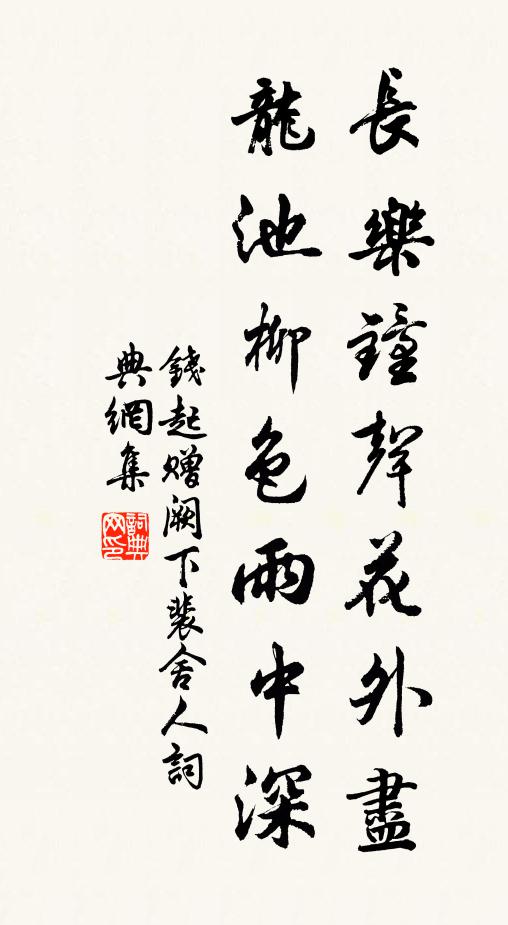 長樂鐘聲花外盡
龍池柳色雨中深
錢起贈闕下裴舍人詞
典網集
詞典
网印